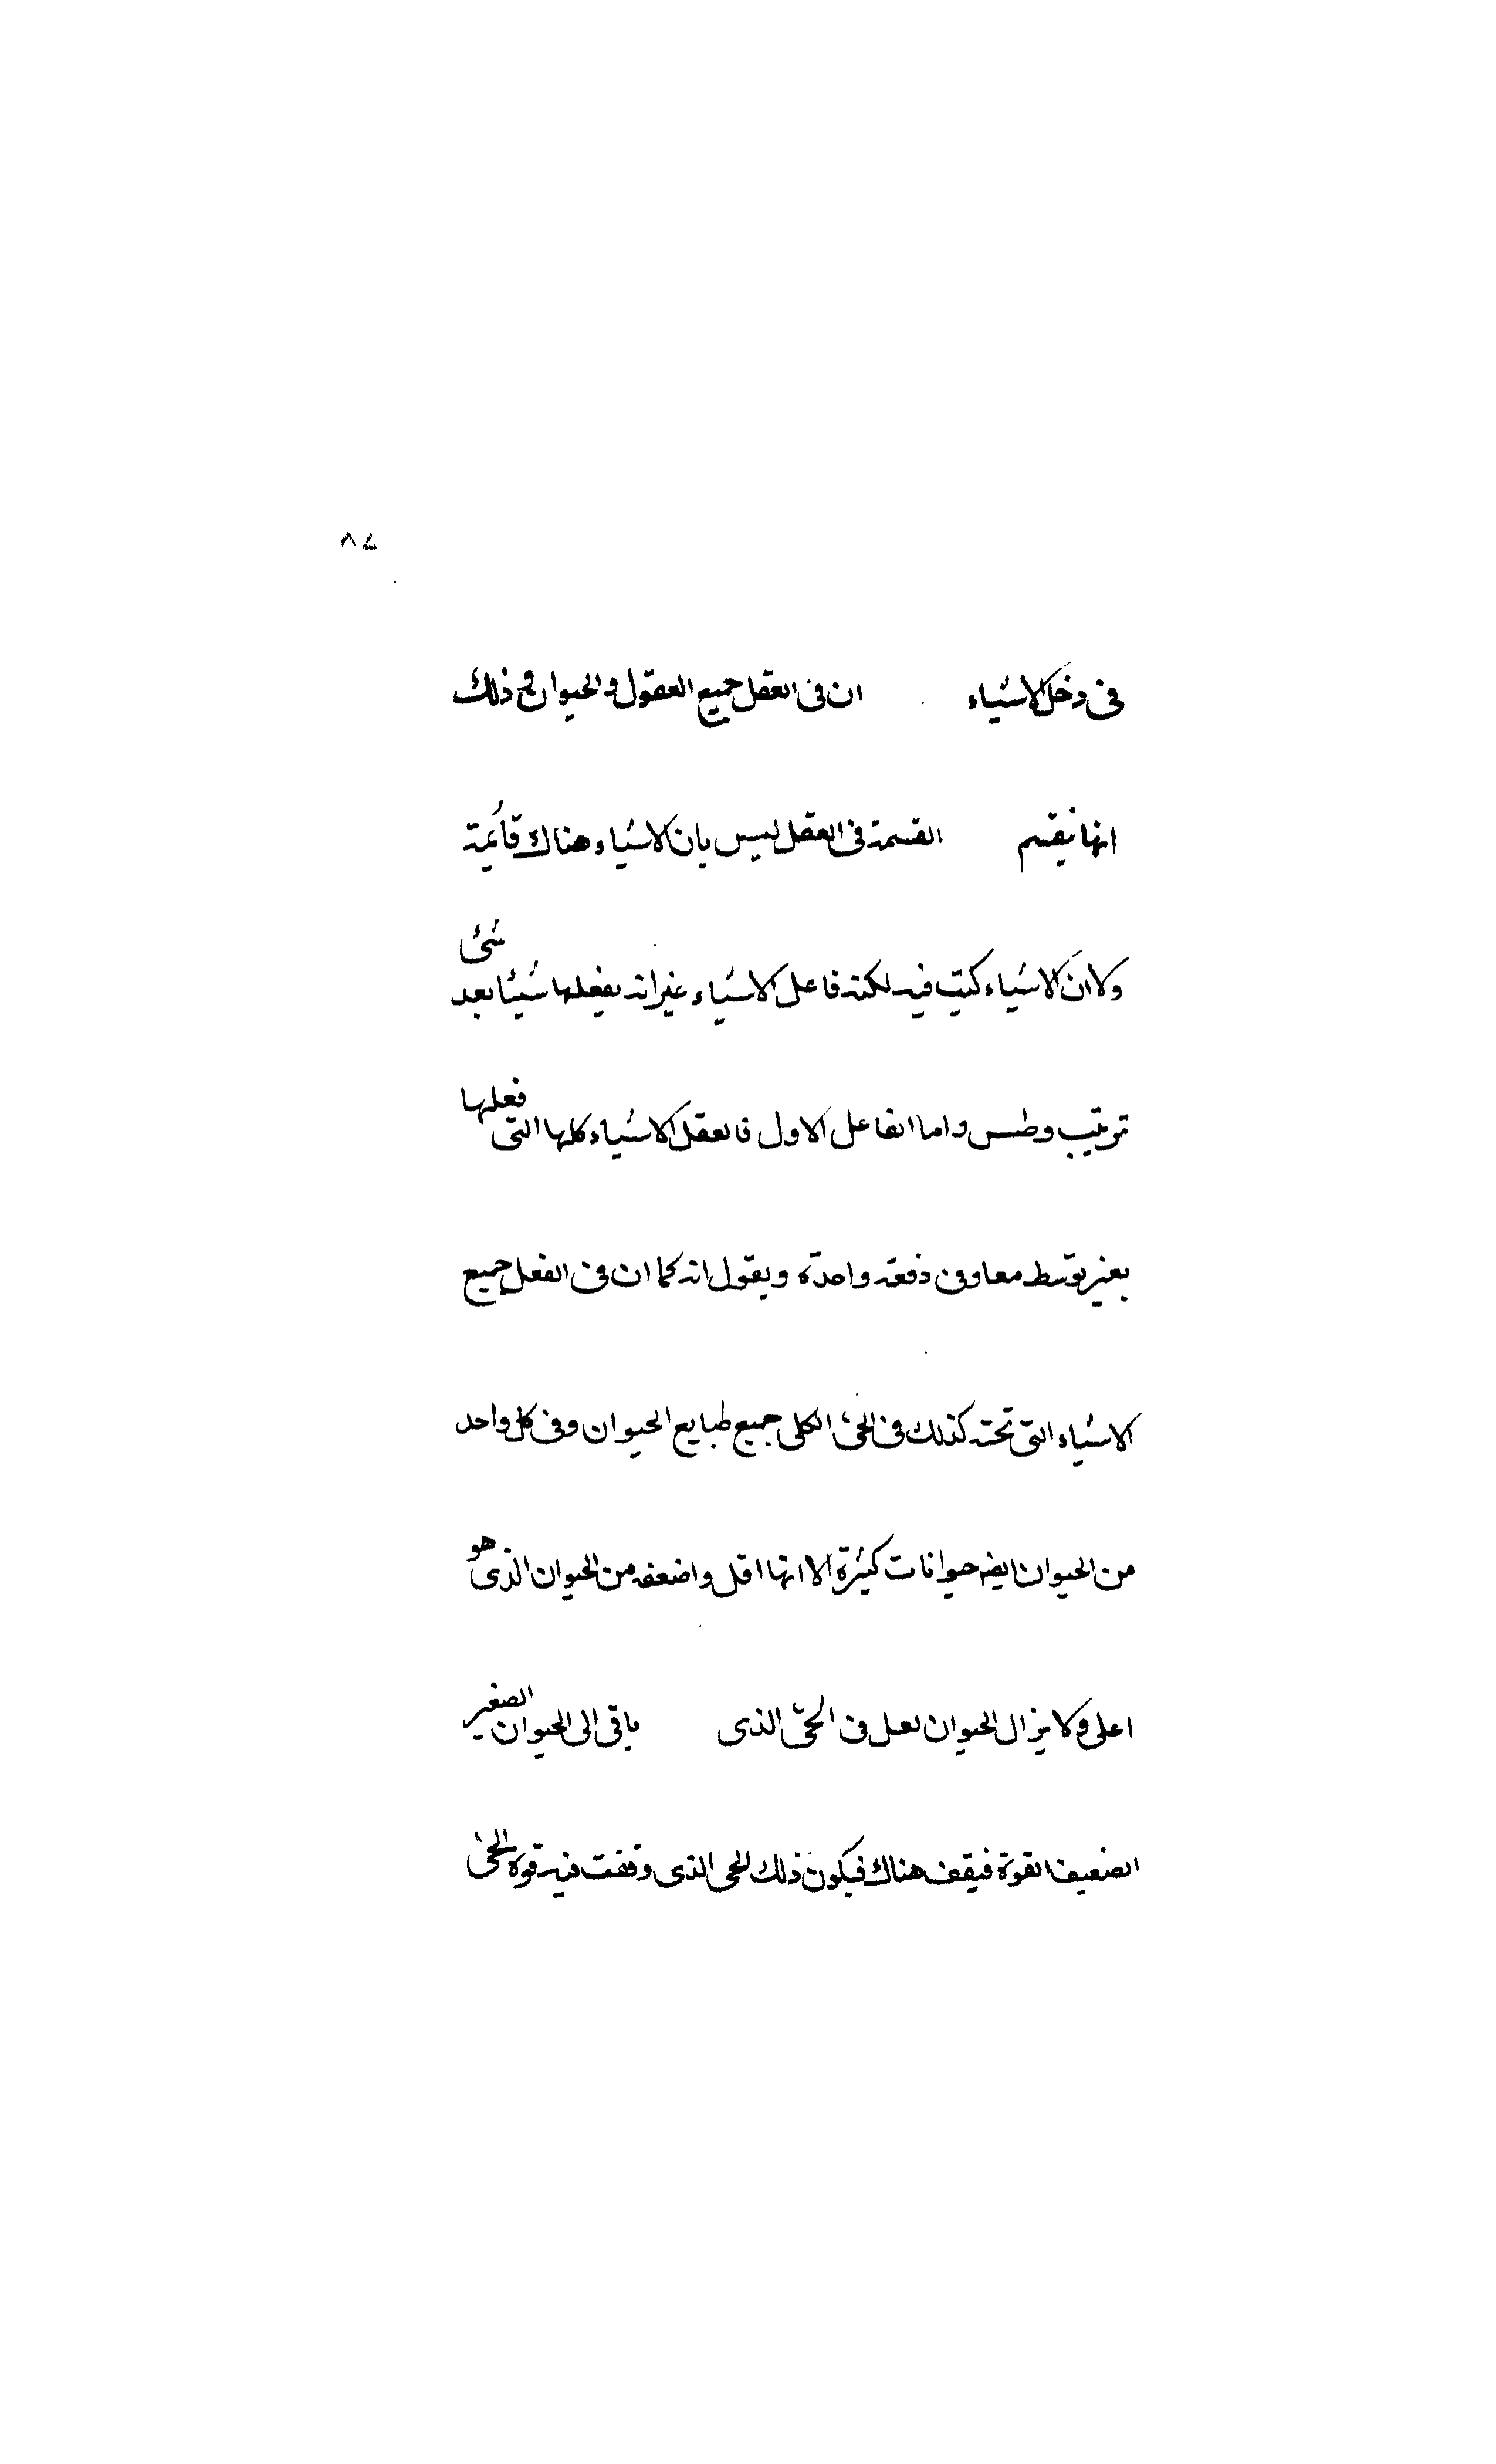 في دخل الاشياء ان في العقل جميع العقول والحيوان في ذلك
انها ينقسم القسمة في العقل ليس بان الاشياء هناك قائمة
ولا ان الاشياء كيت فيه لكنه فاعل الاشياء غير انه يفعلها شيئا بعد شئ
ترتيب وطس واما الفاعل الاول فالعقل الاشياء كلها التي فعلها
بغير توسط معا وفي دفعة واحدة ويقول انه كما ان في الفعل جميع
الاشياء التي تحته كذلك في الحي الكلي جميع طبايع الحيوان وفي كل واحد
من الحيوان ايضه حيوانات كثيرة الا انها اقل واضعف من الحيوان الذي هو
اعلى ولا يزال الحيوان لعل في الحي الذي ياتي الى الحيوان الصغير
الضعيف القوة فيقف هناك فيكون ذلك الحي الذي وقفت فيه قوة الحي